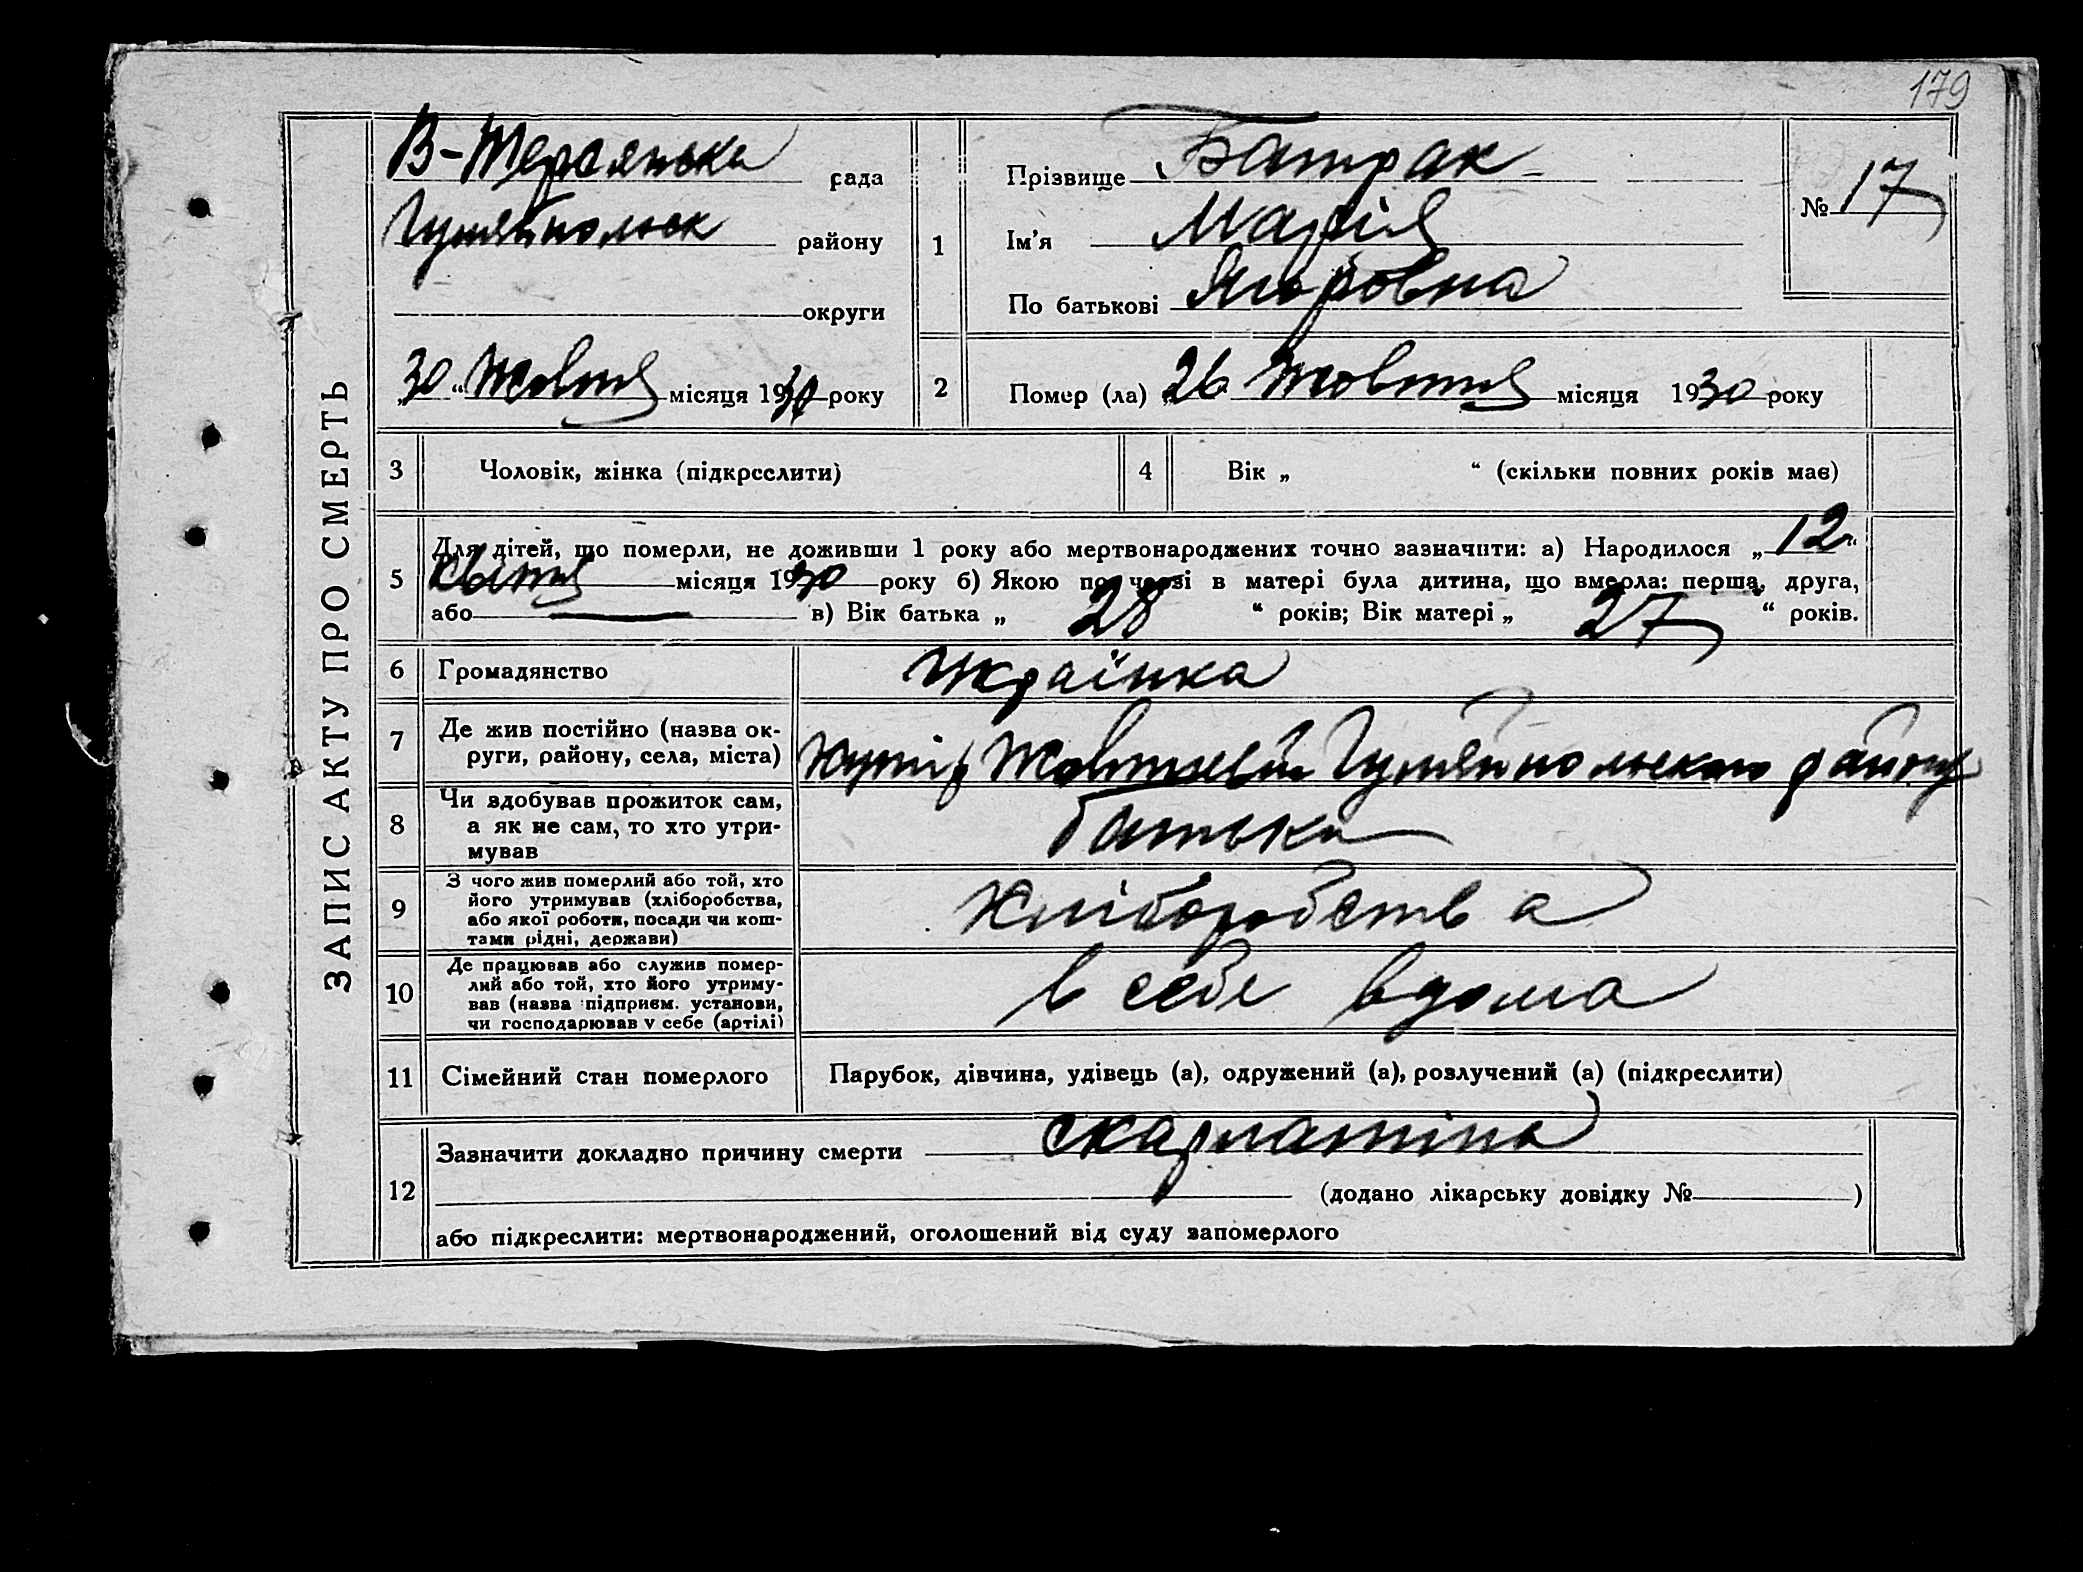 179
ЗАПИС АКТУ ПРО СМЕРТЬ
В-Терсянська рада
Гуляйпольск району
округи
„30“ Жовтня місяця 1930 року
1
Прізвище Батрак
Ім'я Марія
По батькові Ягоровна
№ 17
2
Помер (ла) „26 Жовтня місяця 1930 року
3 Чоловік, жінка (підкреслити)
4 Вік „ “ (скільки повних років має)
5
Для дітей, що померли, не доживши 1 року або мертвонароджених точно зазначити: а) Народилося „12“
Квітня місяця 1930 року б) Якою по черзі в матері була дитина, що вмерла: перша, друга,
або в) Вік батька „ 28 “ років; Вік матері „ 27 “ років.
6 Громадянство Українка
7
Де жив постійно (назва ок-
руги, району, села, міста) Хутір Жовтневий Гуляйпольского району
8
Чи здобував прожиток сам,
а як не сам, то хто утри-
мував
батько
9
З чого жив померлий або той, хто
його утримував (хліборобства,
або якої роботи, посади чи кош-
тами рідні, держави)
Хліборобства
10
Де працював або служив помер-
лий або той, хто його утриму-
вав (назва підприєм. установи,
чи господарював у себе (артілі)
в себе вдома
11 Сімейний стан померлого Парубок, дівчина, удівець (а), одружений (а), розлучений (а) (підкреслити)
12
Зазначити докладно причину смерти скарлатіна
(додано лікарську довідку № )
або підкреслити: мертвонароджений, оголошений від суду запомерлого